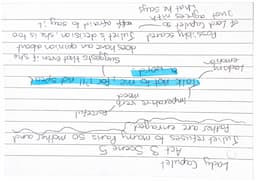 Lady Capulet
Act 3 Scene 5
Juliet refuses to marry Paris so mother and
father are enraged
Imperative verb
forceful
mood
Talk not to me for I'll not speak
a word
Lacking
emotion
Suggests that even if she
does have an opinion about
Juliet's decision she is too
afraid to say it
Possibly scared
of Lord Capulet so
Just agrees with
what he says